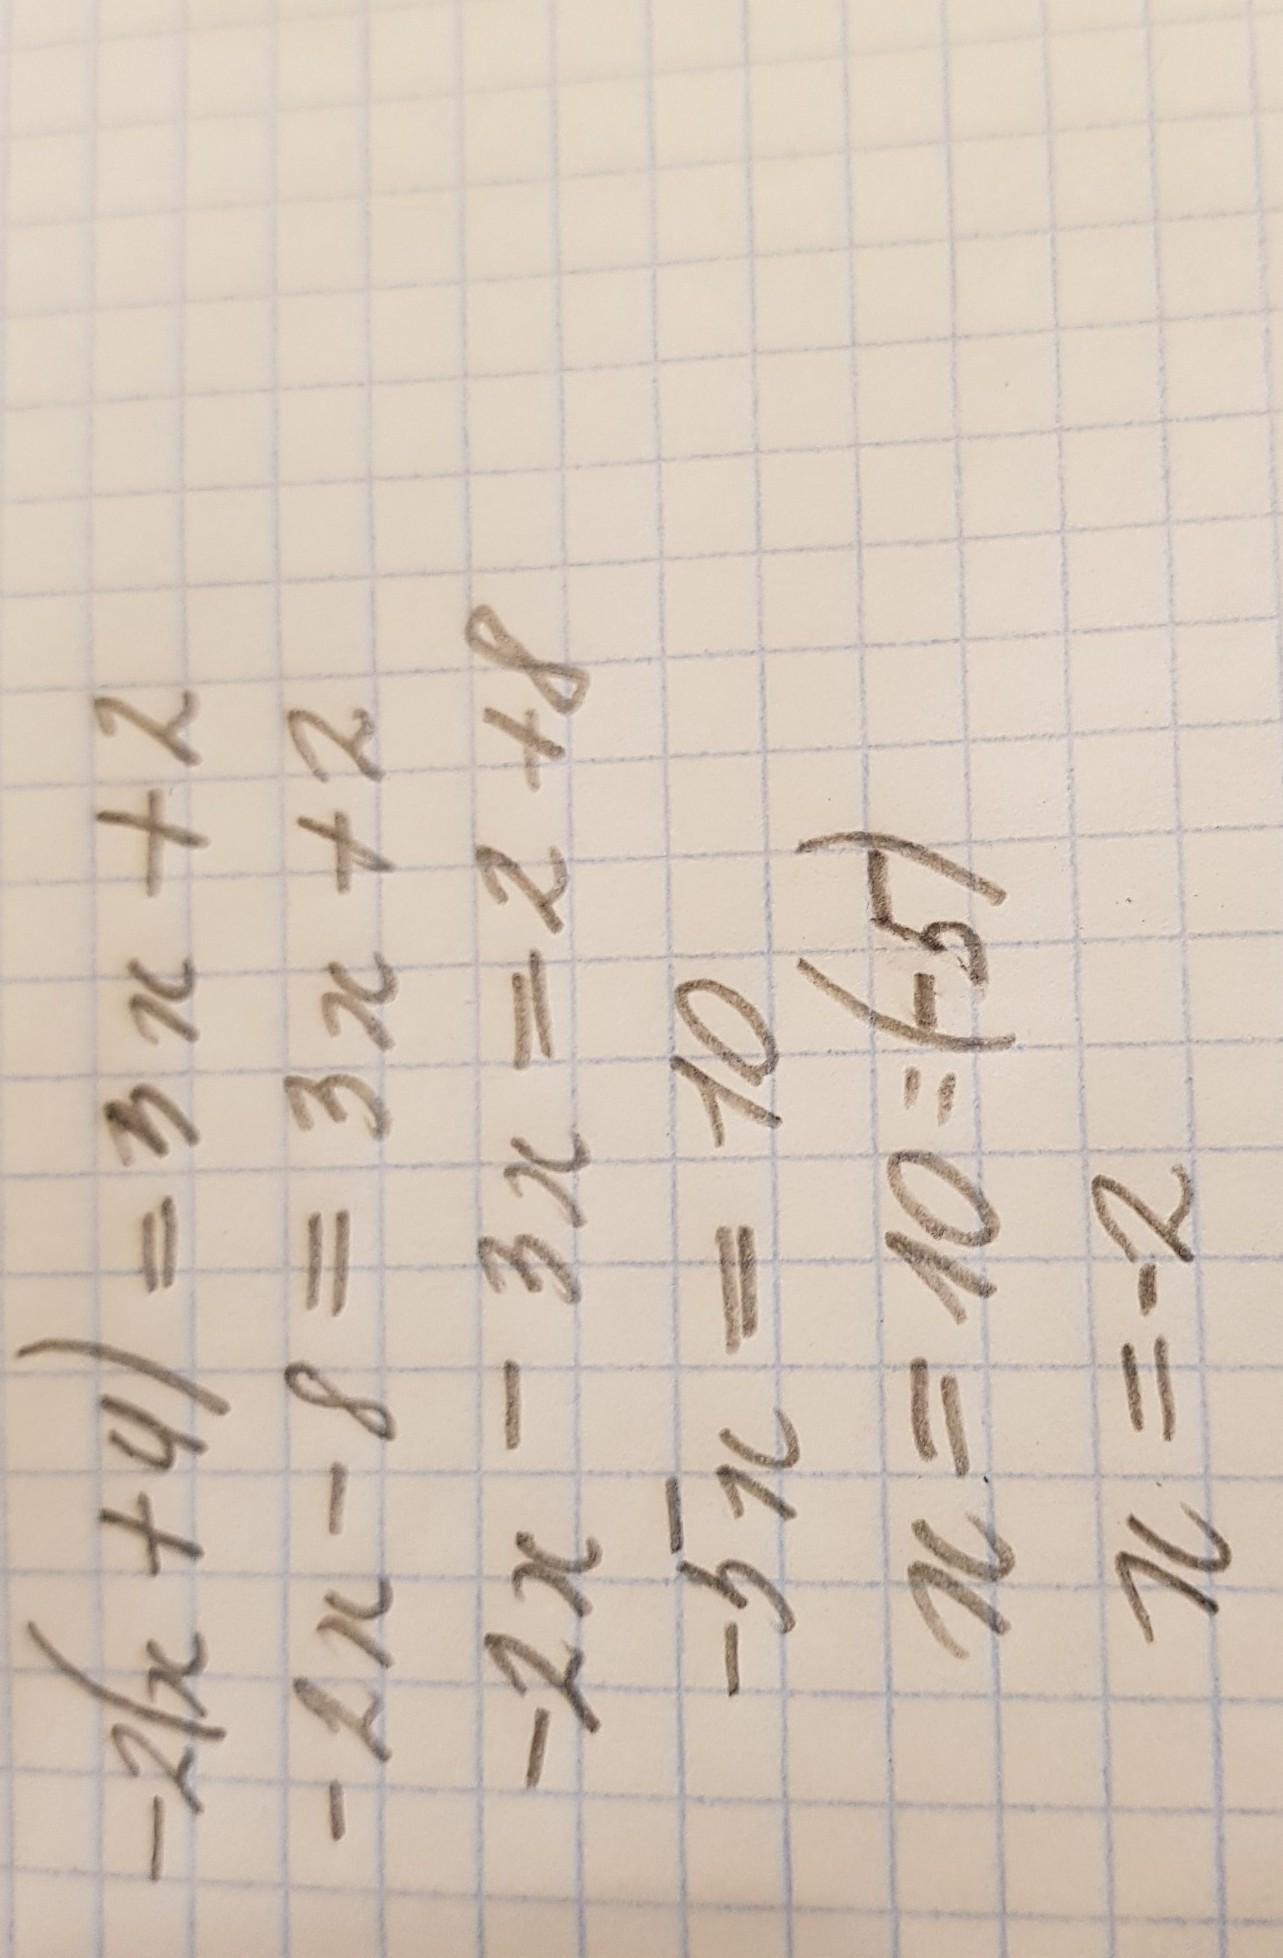 -2(x + 4) = 3x + 2
-2x - 8 = 3x + 2
-2x - 3x = 2 + 8
-5x = 10
x = 10 : (-5)
x = -2